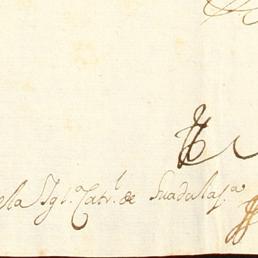 ella Igl.ᵃ Catr.ˡ de Guadalax.ᵃ